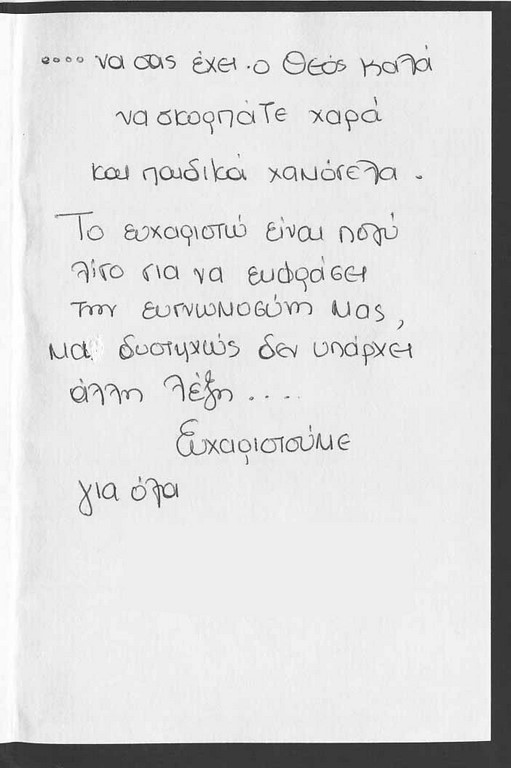 .... να σας έχει ο Θεός καλά
να σκορπάτε χαρά
και παιδικά χαμόγελα.
Το ευχαριστώ είναι πολύ
λίγο για να εκφράσει
την ευγνωμοσύνη μας,
μα δυστυχώς δεν υπάρχει
άλλη λέξη ....
Ευχαριστούμε
για όλα